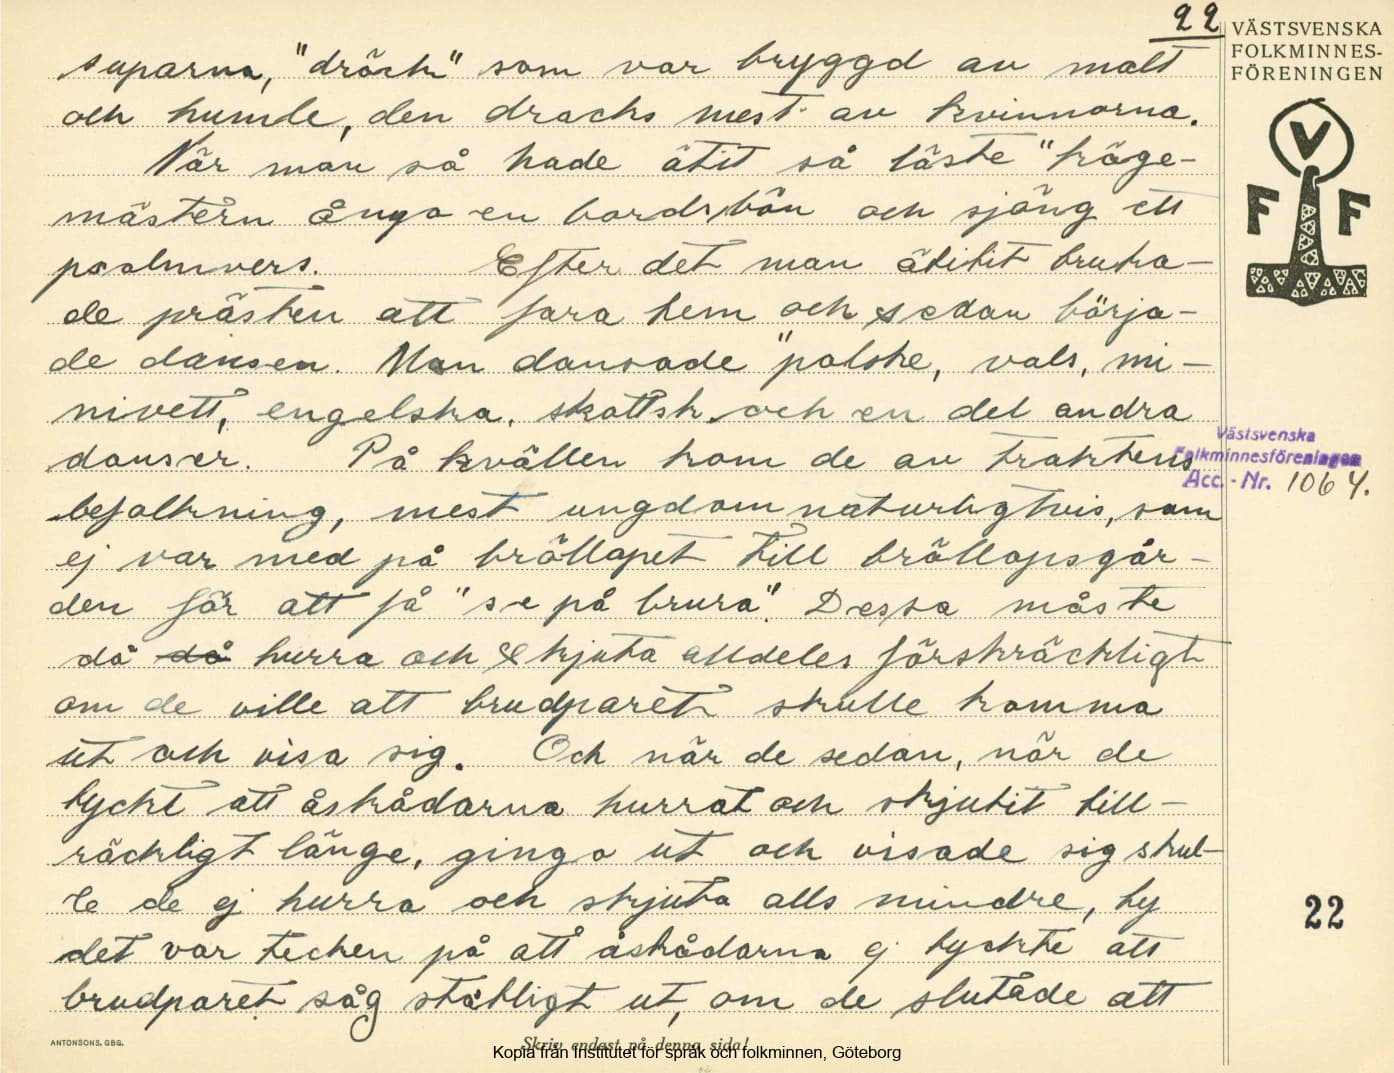 22
VÄSTSVENSKA
FOLKMINNES-
FÖRENINGEN
V
F F
suparna, "dröck" som var bryggd av malt
och humle, den dracks mest av kvinnorna.
När man så hade ätit så läste "kröge-
mästern ånyo en bordsbön och sjöng ett
psalmvers. Efter det man ätitit bruka-
de prästen att fara hem och sedan börja-
de dansen. Man dansade "polske, vals, mi-
nivett, engelska, skottsk och en del andra
danser. På kvällen kom de av traktens
befolkning, mest ungdom naturligtvis, som
ej var med på bröllopet till bröllopsgår-
den för att få "se på brura". Dessa måste
då då hurra och skjuta alldeles förskräckligt
om de ville att brudparet skulle komma
ut och visa sig. Och när de sedan, när de
tyckt att åskådarna hurrat och skjutit till-
räckligt länge, gingo ut och visade sig skul-
le de ej hurra och skjuta alls mindre, ty
det var tecken på att åskådarna ej tyckte att
brudparet såg ståtligt ut, om de slutade att
Västsvenska
Folkminnesföreningen
Acc.-Nr. 1064.
22
ANTONSONS, GBG.
Skriv endast på denna sida!
Kopia från Institutet för språk och folkminnen, Göteborg